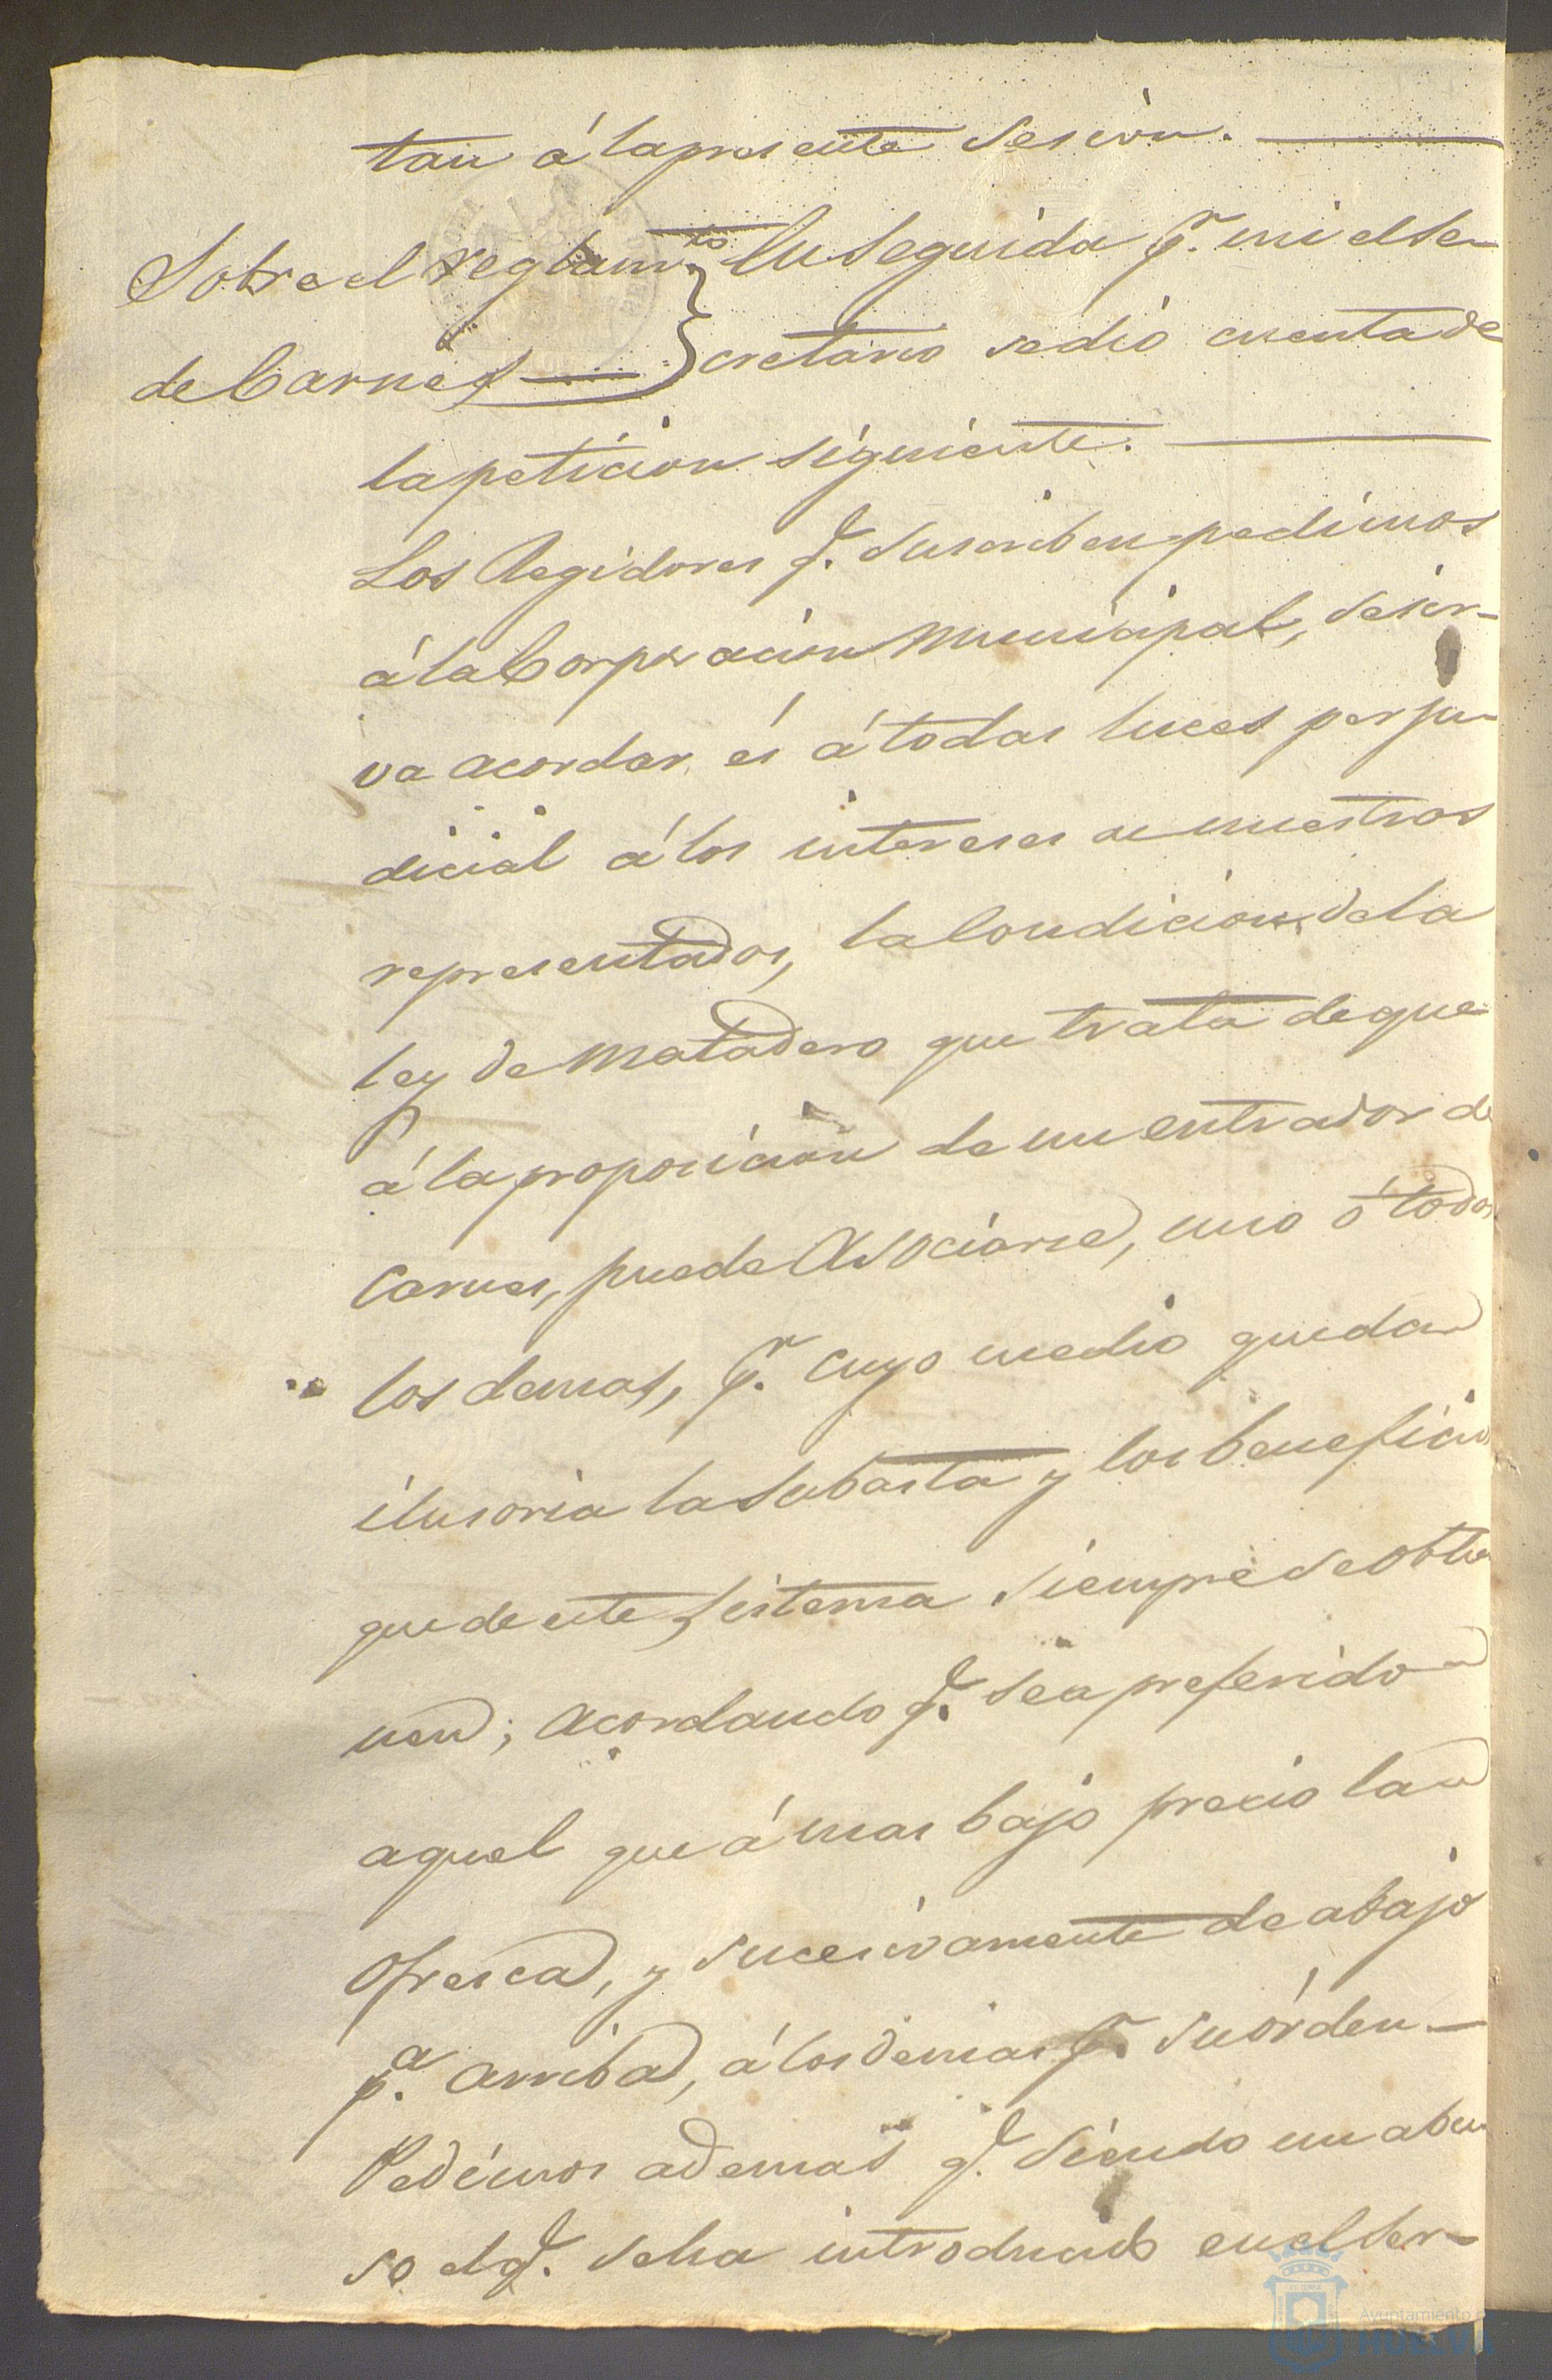 tan á la presente sesion.
Sobre el reglam.to
de Carnes
En seguida p.r mi el Se-
cretario se dió cuenta de
la peticion siguiente.
Los Regidores q.e suscriben pedimos
á la Corporacion Municipal, se sir-
va acordar es á todas luces perju-
dicial á los intereses de nuestros
representados, la Condicion de la
ley de Matadero que trata de que
á la proposicion de un entrador de
carnes, puede Asociarse, uno ó todos
los demas, p.r cuyo medio queda
ilusoria la Subasta y los beneficios
que de este Sistema siempre se obtie
nen; acordando q.e sea preferido
aquel que á mas bajo precio la
Ofresca, y sucesivamente de abajo
p.a arriba, á los demas p.r su órden
Pedimos ademas q.e siendo un abu
so el q.e se ha introducido en el Ser-
Ayuntamiento
HUELVA